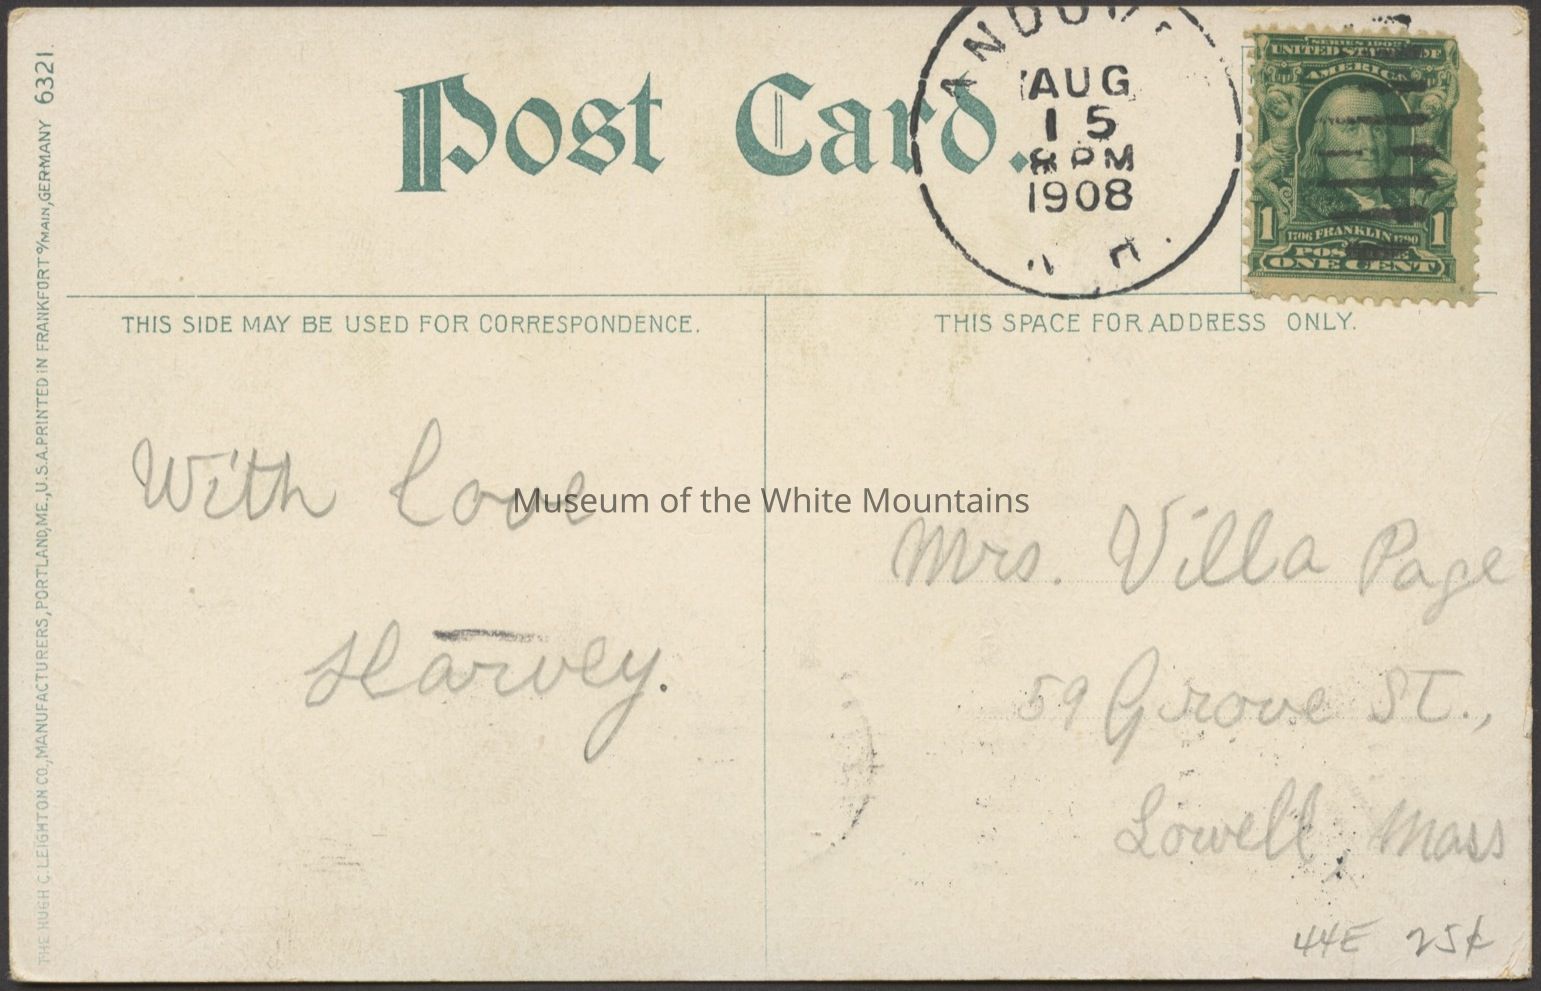 Post Card.
AUG
15
8 PM
1908
SERIES 1902
UNITED STATES OF
AMERICA
1 1706 FRANKLIN 1790 1
ONE CENT
THIS SIDE MAY BE USED FOR CORRESPONDENCE.
THIS SPACE FOR ADDRESS ONLY.
With Love
Harvey.
Museum of the White Mountains
Mrs. Villa Page
59 Grove St.,
Lowell, Mass
44E 25¢
THE HUGH C. LEIGHTON CO., MANUFACTURERS, PORTLAND, ME., U.S.A. PRINTED IN FRANKFORT o/MAIN, GERMANY 6321.